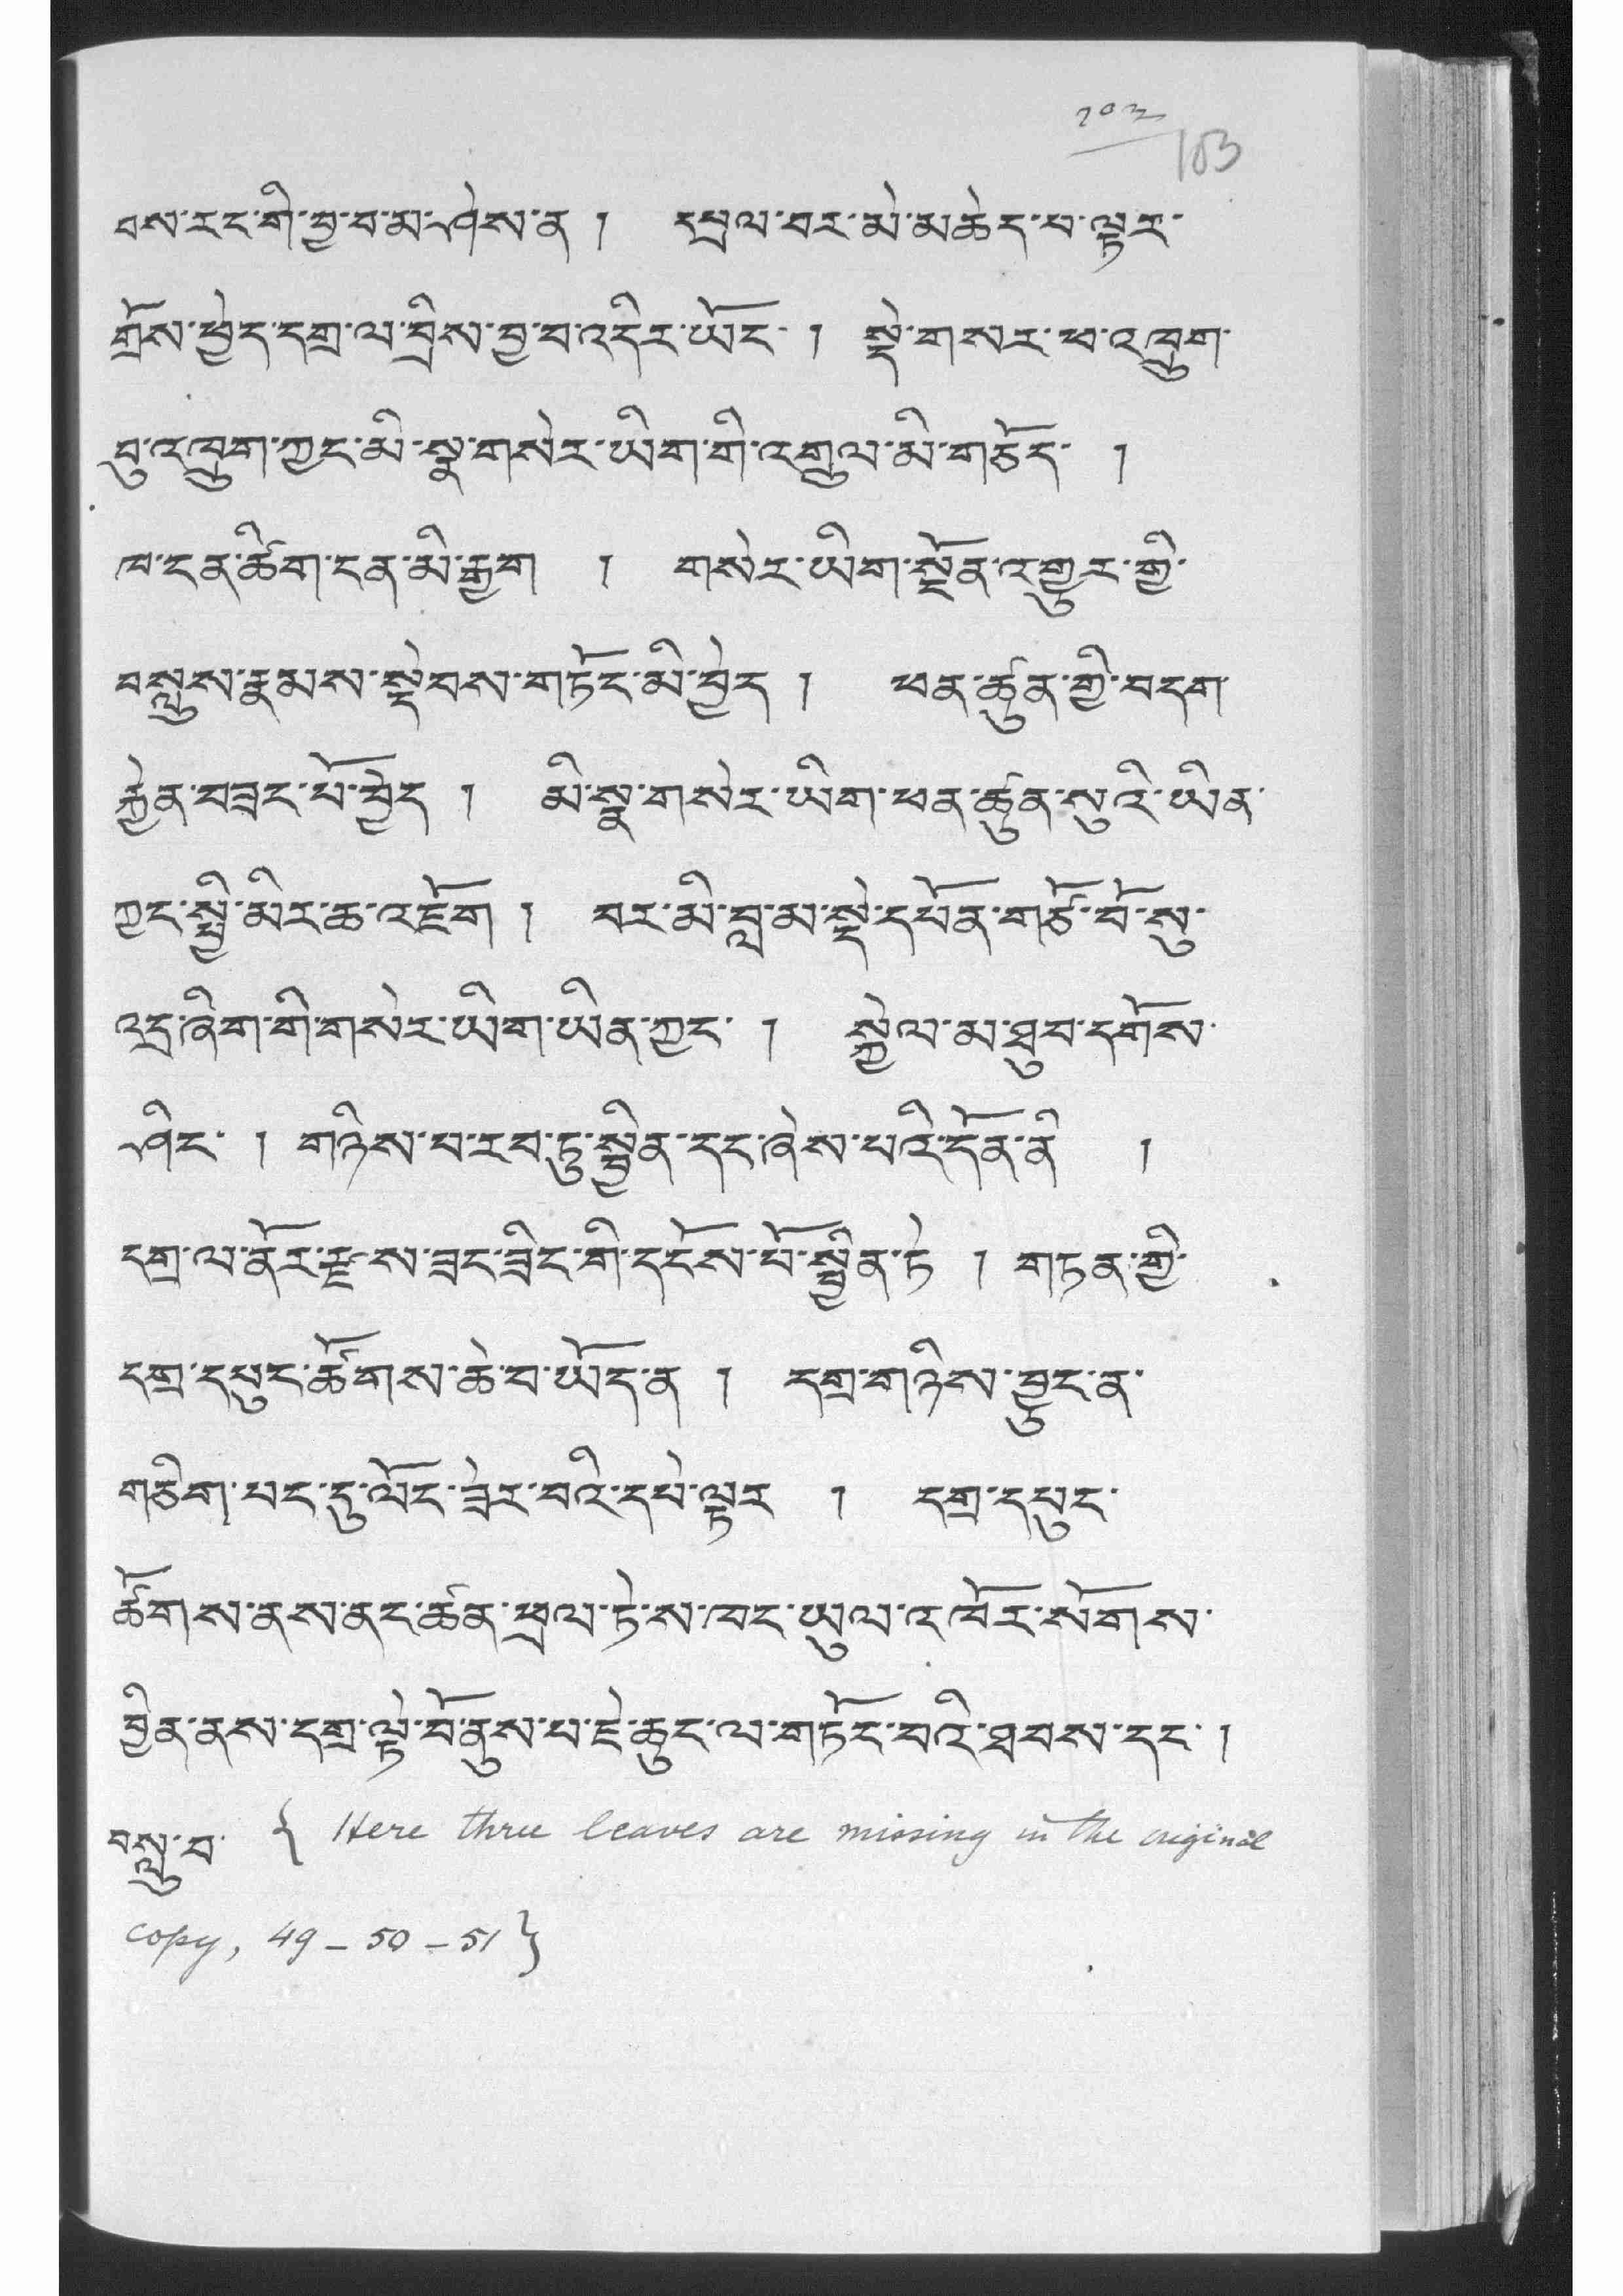 ༡༠༣
103
བས་རང་གི་བྱ་བ་མ་ཤེས་ན །  དཔྲལ་བར་མེ་མཆེད་པ་ལྟར་
གྲོས་ཕྱེད་དགྲ་ལ་བྲིས་བྱ་བ་འདིར་ཡོང་ །  སྡེ་གསར་ཕ་འཁྲུག་
བུ་འཁྲུག་ཀྱང་མི་སྣ་གསེར་ཡིག་གི་འགྲུལ་མི་གཅོད་ །
ཁ་ངན་ཚིག་ངན་མི་རྒྱག །  གསེར་ཡིག་སྔོན་འགྱུར་གྱི་
བསླུས་རྣམས་སྡེབས་གཏོང་མི་བྱེད །  ཕན་ཚུན་གྱི་བདག་
རྐྱེན་བཟང་པོ་བྱེད །  མི་སྣ་གསེར་ཡིག་ཕན་ཚུན་སུའི་ཡིན་
ཀྱང་སྤྱི་མིར་ཆ་འཇོག །  བར་མི་བླ་མ་སྡེ་དཔོན་གཙོ་བོ་སུ་
འདྲ་ཞིག་གི་གསེར་ཡིག་ཡིན་ཀྱང་ །  སྐྱེལ་མ་ཐུབ་དགོས་
ཤིང་ །  གཉིས་པ་རབ་ཏུ་སྦྱིན་དང་ཞེས་པའི་དོན་ནི །
དགྲ་ལ་ནོར་རྫས་ཟང་ཟིང་གི་དངོས་པོ་སྦྱིན་ཏེ །  གཏན་གྱི་
དགྲ་དཔུང་ཚོགས་ཆེ་བ་ཡོད་ན །  དགྲ་གཉིས་བྱུང་ན་
གཅིག་པང་དུ་ལོང་ཟེར་བའི་དཔེ་ལྟར །  དགྲ་དཔུང་
ཚོགས་ནས་ནང་ཚན་ཕྲལ་ཏེ་ས་ཁང་ཡུལ་འཁོར་སོགས་
བྱིན་ནས་དགྲ་ལྟེ་བོ་ནུས་པ་ཇེ་ཆུང་ལ་གཏོང་བའི་ཐབས་དང་ །
བསླུ་བ་ { Here three leaves are missing in the original
copy, 49 – 50 – 51 }